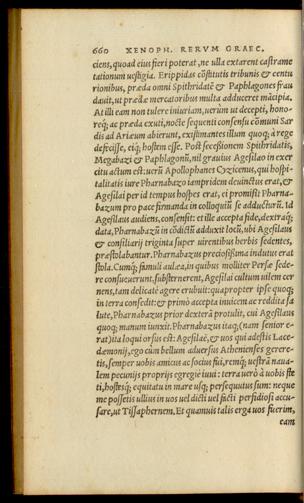 660 XENOPH. RERVM GRAEC.
ciens, quoad eius fieri poterat, ne ulla extarent castrame
tationum uestigia. Erippidas cõstitutis tribunis & centu
rionibus, præda omni Spithridatẽ & Paphlagones frau
dauit, ut præda mercatoribus multa adduceret mãcipia.
At illi eam non tulere iniuriam, uerùm ut decepti, hono-
req́; ac præda exuti, nocte sequenti consensu cõmuni Sar
dis ad Ariæum abierunt, existimantes illum quoq; à rege
defecisse, eiq́; hostem esse. Post secessionem Spithridatis,
Megabazi & Paphlagonũ, nil grauius Agesilao in exer
citu actum est: uerũ Apollophanes Cyzicenus, qui hospi-
talitatis iure Pharnabazo iampridem deuinctus erat, &
Agesilai per id tempus hospes erat, ei promisit Pharna-
bazum pro pace firmanda in colloquiũ se adducturũ. Id
Agesilaus audiens, consensit: et ille accepta fide, dextraq́;
data, Pharnabazũ in cõdictũ adduxit locũ, ubi Agesilaus
& consiliarij triginta super uirentibus herbis sedentes,
præstolabantur. Pharnabazus preciosissima indutus erat
stola. Cumq́; famuli aulæa, in quibus molliter Persæ sede-
re consueuerunt, substernerent, Agesilai cultum uilem cer
nens, tam delicatè agere erubuit: quapropter ipse quoq;
in terra consedit: & primò accepta inuicem ac reddita sa
lute, Pharnabazus prior dexterã protulit, cui Agesilaus
quoq; manum iunxit. Pharnabazus itaq;, (nam senior e-
rat) ita loqui orsus est: Agesilaë, & uos qui adestis Lace-
dæmonij, ego cùm bellum aduersus Athenienses gerere-
tis, semper uobis amicus ac socius fui, remq́; uestrã naua-
lem pecunijs proprijs egregiè iuui: terra uerò à uobis ste
ti, hostesq́; equitatu in mare usq; persequutus sum: neque
me possetis ullius in uos uel dicti uel facti perfidiosi accu-
sare, ut Tissaphernem. Et quamuis talis erga uos fuerim,
eam